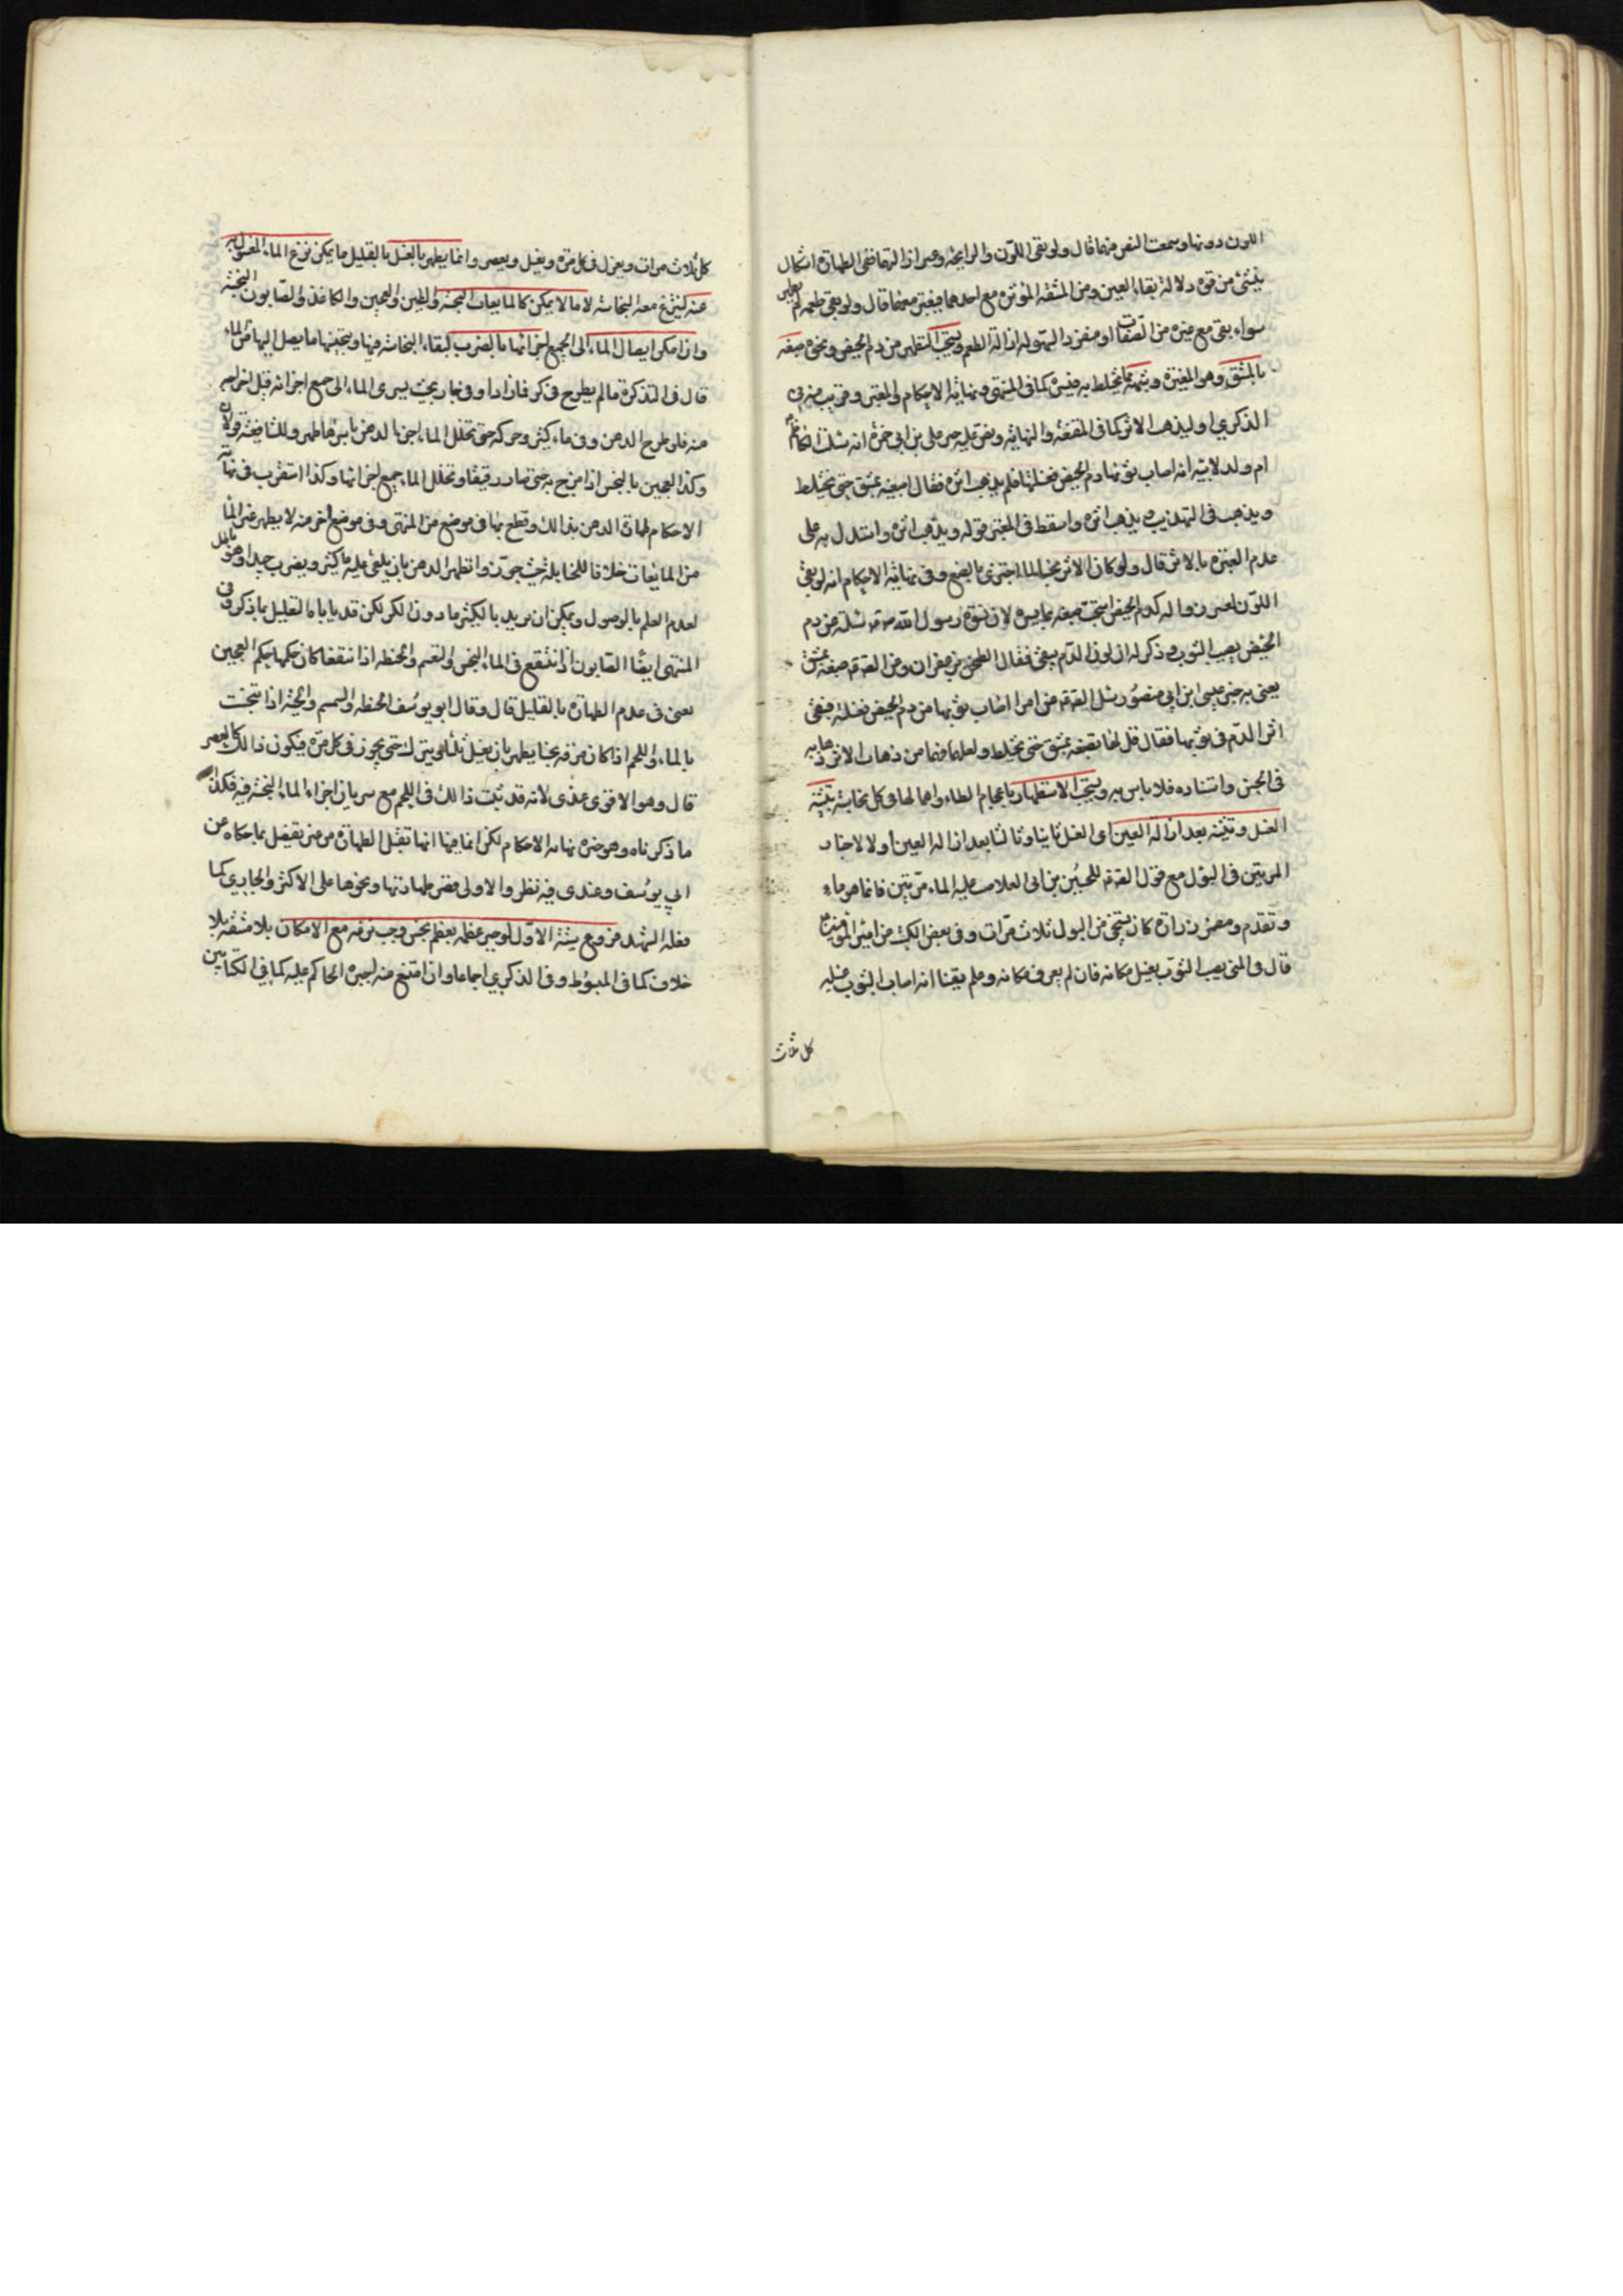 اللون دونها وسمعت النص منها قال ولو بقى اللون والرايحة وعسر ازالتهما ففى الطهارة اشكال
ينشئ من قوة دلالة بقاء العين ومن المشقة المؤثرة مع احدهما فيفترمعهما قال ولو بقى طعمه لم يطهر
سواء بقى مع غيره من الصفات او منفردا لسهولة ازالة الطعم ويستحب التطهير من دم الحيض ونحوه صبغه
بالمشق وهو المغرة وشبهه مما يختلط به فيستره كما فى المنتهى ونهاية الاحكام والمعتبر وقريب منه فى
الذكرى او ليذهب الاثر كما فى المقنعة والنهاية ونص عليه خبر على بن ابى حمزة انه سئلت الكاظم
ام ولد لابيه انه اصاب ثوبها دم الحيض فغسلتها فلم يذهب اثره فقال اصبغيه بمشق حتى يختلط
ويذهب فى التهذيب يذهب اثره واسقط فى المعتبر قوله ويذهب اثره واستدل به على
عدم العبرة بالاثر قال ولو كان الاثر نجسا لما اجتزى بالصبغ وفى نهاية الاحكام انه لو بقى
اللون لعسر زواله كدم الحيض استحب صبغه بما يستره لان نسوة رسول الله ص سئلنه عن دم
الحيض يصيب الثوب وذكر له ان لون الدم يبقى فقال الطخن بزعفران وعن الصادق صبغه بمشق
يعنى به خبر عيسى ابن ابى منصور سئل الصادق عن امراة اصاب ثوبها من دم الحيض فغسلته فبقى
اثر الدم فى ثوبها فقال قل لها تصبغه بمشق حتى يختلط ولعلها فهما من ذهاب الاثر ذهابه
فى الحس واستناده فلا باس به ويستحب الاستظهار باعجام الطاء واهمالها فى كل نجاسة بتثنية
الغسل وتثليثه بعد ازالة العين اى الغسل ثانيا وثالثا بعد ازالة العين اولا لاخبار
المرتين فى البول مع قول الصادق للحسين بن ابى العلا صب عليه الماء مرتين فانما هو ماء
وتقدم ومضمر زرارة كان يستنجى من البول ثلاث مرات وفى بعض الكتب عن امير المؤمنين
قال فى المنى يصيب الثوب يغسل مكانه فان لم يعرف مكانه وعلم يقينا انه اصاب الثوب غسله
كل ثلاث
كله ثلاث مرات ويعزل فى كل مرة ويغسل ويعصر وانما يطهر بالغسل بالقليل ما يمكن نزع الماء المغسول به
عنه لينزع معه النجاسة لا ما لا يمكن كالمايعات النجسة والطين والعجين والكاغذ والصابون النجسة
وان امكن ايصال الماء الى جميع اجزائها بالضرب لبقاء النجاسة فيها وتنجيسها ما يصل اليها من الماء
قال فى التذكرة ما لم يطرح فى كر فما زاد او فى جار بحيث يسرى الماء الى جميع اجزائه قبل اخراجه
منه فلو طرح الدهن فى ماء كثير وحركه حتى تخلل الماء اجزاء الدهن باسرها طهر وللشافعية قولان
وكذا العجين بالنجس اذا مزج به حتى صار رقيقا وتخلل الماء جميع اجزائها وكذا استقرب فى نهاية
الاحكام لحاق الدهن بذالك وقطع بها فى موضع من المنتهى وفى موضع اخر منه لا يطهر غير الماء
من المايعات خلافا للحنابلة حيث جوزوا تطهير الدهن بان يلقى عليه ماء كثير ويضرب جيدا وهو باطل
لعدم العلم بالوصول ويمكن ان يريد بالكثير ما دون الكر لكن قد ياباه التعليل بما ذكر وفى
المنتهى ايضا الصابون اذا انتقع فى الماء النجس والسمسم والحنطة اذا انتقعا كان حكمها حكم العجين
يعنى فى عدم الطهارة بالقليل قال وقال ابو يوسف الحنطة والسمسم والخشبة اذا تنجست
بالماء واللحم اذا كان مرقه نجسا يطهر بان يغسل ثلثا ويترك حتى يجف فى كل مرة فيكون ذالك كالعصر
قال وهو الاقوى عندى لانه قد ثبت ذالك فى اللحم مع سريان اجزاء الماء النجسة فيه فكذا
ما ذكرناه وهو خيرة نهاية الاحكام لكن انما فيها انها تقبل الطهارة من غير تفصيل بما حكاه عن
ابى يوسف وعندى فيه نظر والاولى قصر طهارتها ونحوها على الاكثر والجارى كما
فعله الشهيد فروع ستة الاول لو جبر عظمه بعظم نجس وجب نزعه مع الامكان بلا مشقة بلا
خلاف كما فى المبسوط وفى الذكرى اجماعا وان امتنع منه اجبره الحاكم عليه كما فى الكتابين